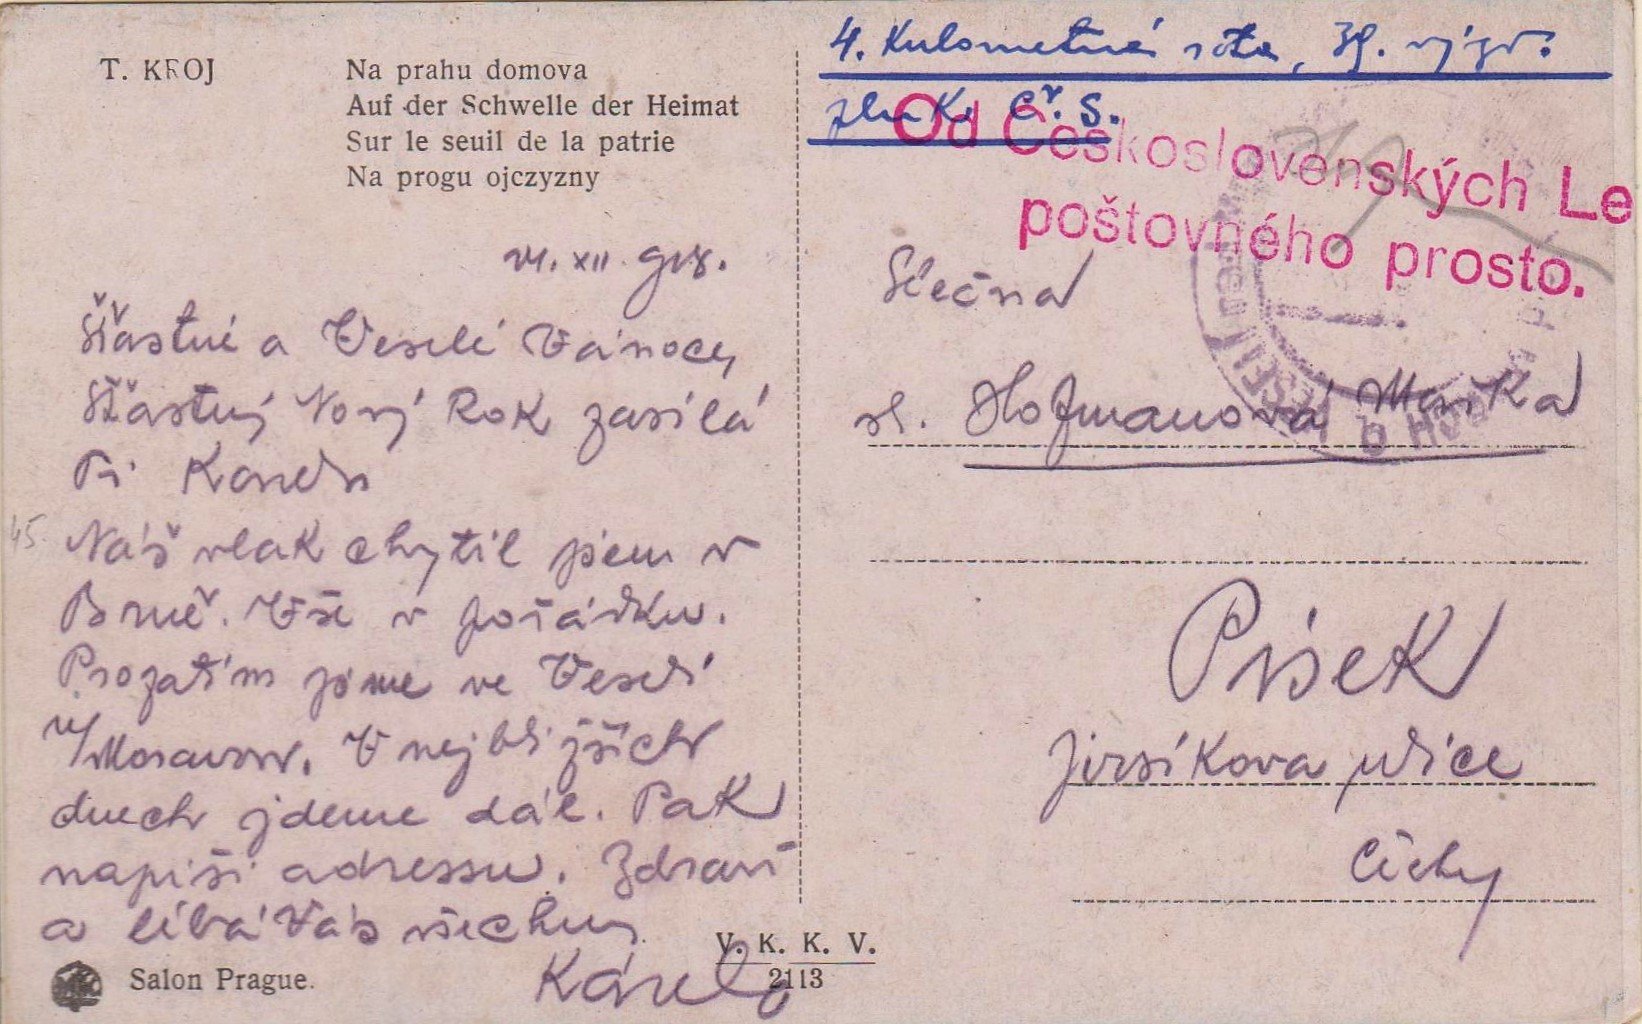 T. KROJ
Na prahu domova
Auf der Schwelle der Heimat
Sur le seuil de la patrie
Na progu ojczyzny
4. Kulometná rota, 39. výzv.
pluku Č. S.
Od Československých Le
poštovného prosto.
24. XII. 918.
Šťastné a Veselé Vánoce,
Šťastný Nový Rok zasílá
Ti Karel
45.
Náš vlak chytil jsem v
Brně. Vše v pořádku.
Prozatím jsme ve Veselí
n/Moravou. V nejbližších
dnech jdeme dál. Pak
napíši adressu. Zdraví
a líbá Vás všechny
Karel
Slečna
sl. Hofmanova Mařka
Písek
Jirsíkova ulice
Čechy
V. K. K. V.
2113
Salon Prague.